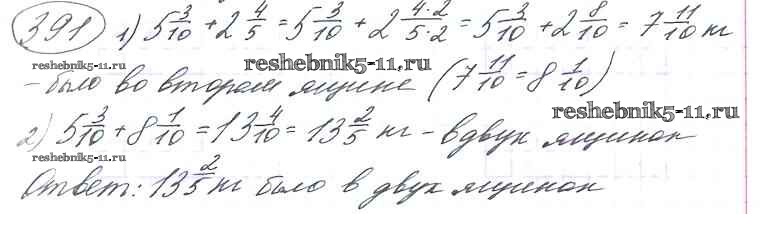 391 1) 5 3/10 + 2 4/5 = 5 3/10 + 2 4·2/5·2 = 5 3/10 + 2 8/10 = 7 11/10 кг
reshebnik5-11.ru reshebnik5-11.ru
- было во втором ящике (7 11/10 = 8 1/10)
reshebnik5-11.ru
2) 5 3/10 + 8 1/10 = 13 4/10 = 13 2/5 кг - в двух ящиках
reshebnik5-11.ru
Ответ: 13 2/5 кг было в двух ящиках